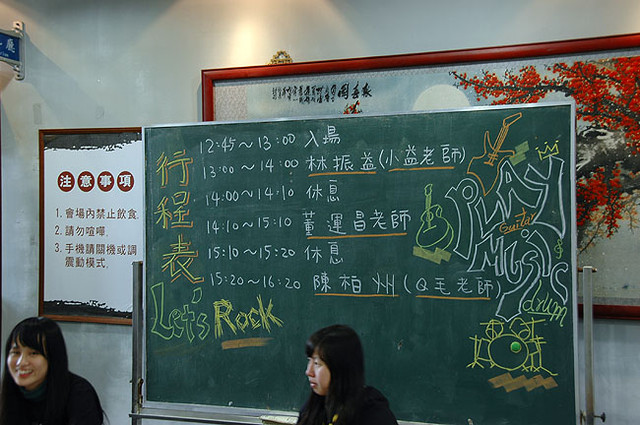 注意事項
1. 會場內禁止飲食.
2. 請勿喧嘩.
3. 手機請關機或調
震動模式.
行程表
12:45～13:00 入場
13:00～14:00 林振益(小益老師)
14:00～14:10 休息
14:10～15:10 董運昌老師
15:10～15:20 休息
15:20～16:20 陳柏州(Q毛老師)
Let's Rock
PLAY
Guitar
MUSIC
&
drum